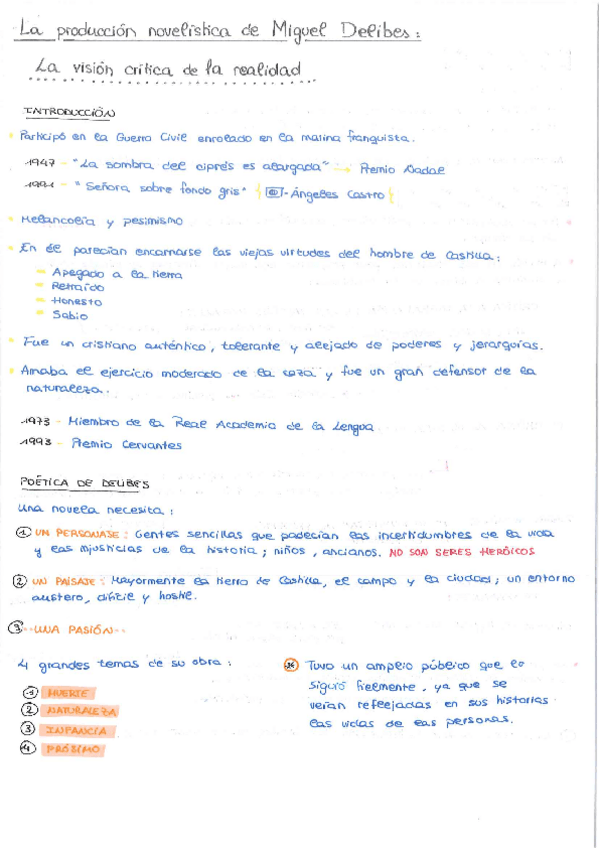 La producción novelística de Miguel Delibes:
La visión crítica de la realidad
INTRODUCCIÓN
Participó en la Guerra Civil enrolado en la marina franquista.
1947 - "La sombra del ciprés es alargada" → Premio Nadal
1991 - "Señora sobre fondo gris" - Ángeles Castro
Melancolía y pesimismo
En él parecían encarnarse las viejas virtudes del hombre de Castilla:
- Apegado a la tierra
- Retraído
- Honesto
- Sabio
Fue un cristiano auténtico, tolerante y alejado de poderes y jerarquías.
Amaba el ejercicio moderado de la caza y fue un gran defensor de la
naturaleza.
1973 - Miembro de la Real Academia de la Lengua
1993 - Premio Cervantes
POÉTICA DE DELIBES
Una novela necesita:
1 UN PERSONAJE: Gentes sencillas que padecían las incertidumbres de la vida
y las injusticias de la historia; niños, ancianos. NO SON SERES HERÓICOS
2 UN PAISAJE: Mayormente la tierra de Castilla, el campo y la ciudad; un entorno
austero, difícil y hostil.
3 UNA PASIÓN
4 grandes temas de su obra:
1 MUERTE
2 NATURALEZA
3 INFANCIA
4 PRÓJIMO
* Tuvo un amplio público que lo
siguió fielmente, ya que se
veían reflejadas en sus historias
las vidas de las personas.